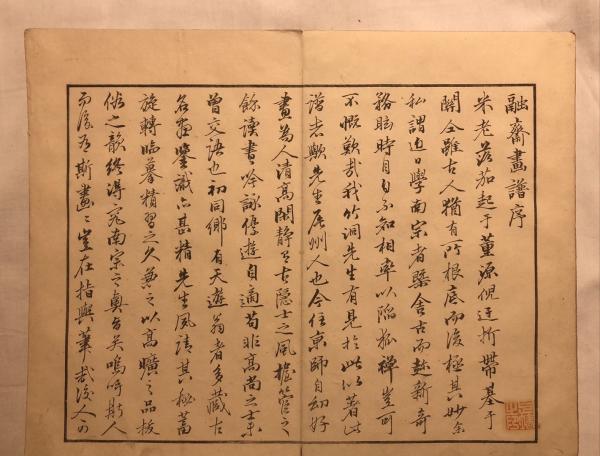 融齋畫譜序
米老落茄起于董源倪迂折帶基于
關仝雖古人猶有所根底而後極其妙余
私謂近日學南宗者槩舍古而趍新奇
務眩時目而不知相率以陷狐禪豈可
不慨歎哉我竹洞先生有見於此以著此
譜者歟先生尾州人也今住東師自幼好
畫為人清高閑靜有古隱士之風管之
餘讀書吟詠優遊自適苟非高尚之士未
曾交語也初同鄉有天遊翁者多藏古
名畫鑒識亦甚精先生夙請其秘蓄
旋轉臨摹精習之久兼之以高曠之品拔
俗之韻終得究南宗之奧旨矣嗚呼斯人
而後有斯畫〻豈在指與筆哉後人勿